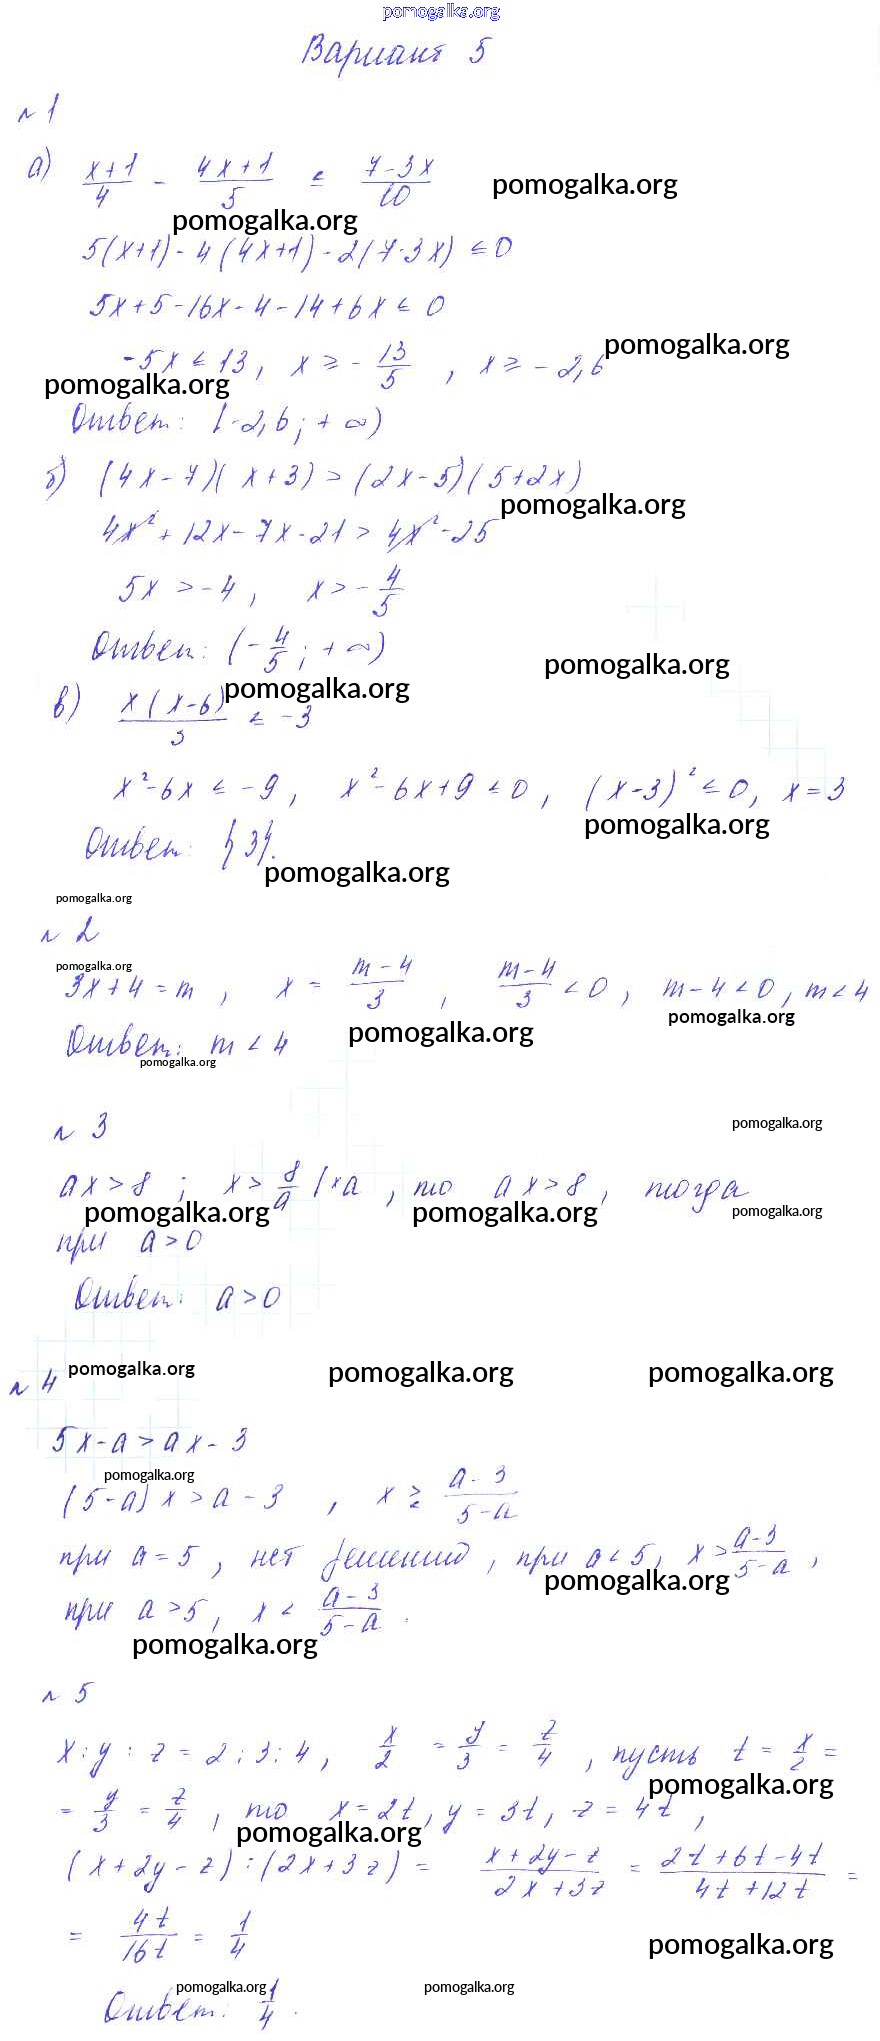 pomogalka.org
Вариант 5
№ 1
а) (x+1)/4 - (4x+1)/5 ≤ (7-3x)/10 pomogalka.org
pomogalka.org
5(x+1) - 4(4x+1) - 2(7-3x) ≤ 0
5x+5-16x-4-14+6x ≤ 0
pomogalka.org
-5x ≤ 13, x ≥ - 13/5, x ≥ -2,6
pomogalka.org
Ответ: [-2,6; +∞)
б) (4x-7)(x+3) > (2x-5)(5+2x)
pomogalka.org
4x² + 12x - 7x - 21 > 4x² - 25
5x > -4, x > - 4/5
Ответ: (- 4/5; +∞)
pomogalka.org
pomogalka.org
в) x(x-6)/3 ≤ -3
x² - 6x ≤ -9, x² - 6x + 9 ≤ 0, (x-3)² ≤ 0, x = 3
pomogalka.org
Ответ: {3}.
pomogalka.org
pomogalka.org
№ 2
pomogalka.org
3x+4 = m, x = (m-4)/3, (m-4)/3 < 0, m-4 < 0, m < 4
pomogalka.org
Ответ: m < 4 pomogalka.org
pomogalka.org
№ 3 pomogalka.org
ax > 8; x > 8/a |×a, то ax > 8, тогда
pomogalka.org pomogalka.org pomogalka.org
при a > 0
Ответ: a > 0
№ 4 pomogalka.org pomogalka.org pomogalka.org
5x - a > ax - 3
pomogalka.org
(5-a)x > a-3, x ≷ (a-3)/(5-a)
при a = 5, нет решений, при a < 5, x > (a-3)/(5-a),
pomogalka.org
при a > 5, x < (a-3)/(5-a).
pomogalka.org
№ 5
x : y : z = 2 : 3 : 4, x/2 = y/3 = z/4, пусть t = x/2 =
pomogalka.org
= y/3 = z/4, то x = 2t, y = 3t, z = 4t,
pomogalka.org
(x+2y-z) : (2x+3z) = (x+2y-z)/(2x+3z) = (2t+6t-4t)/(4t+12t) =
= 4t/16t = 1/4
pomogalka.org
pomogalka.org pomogalka.org
Ответ: 1/4.